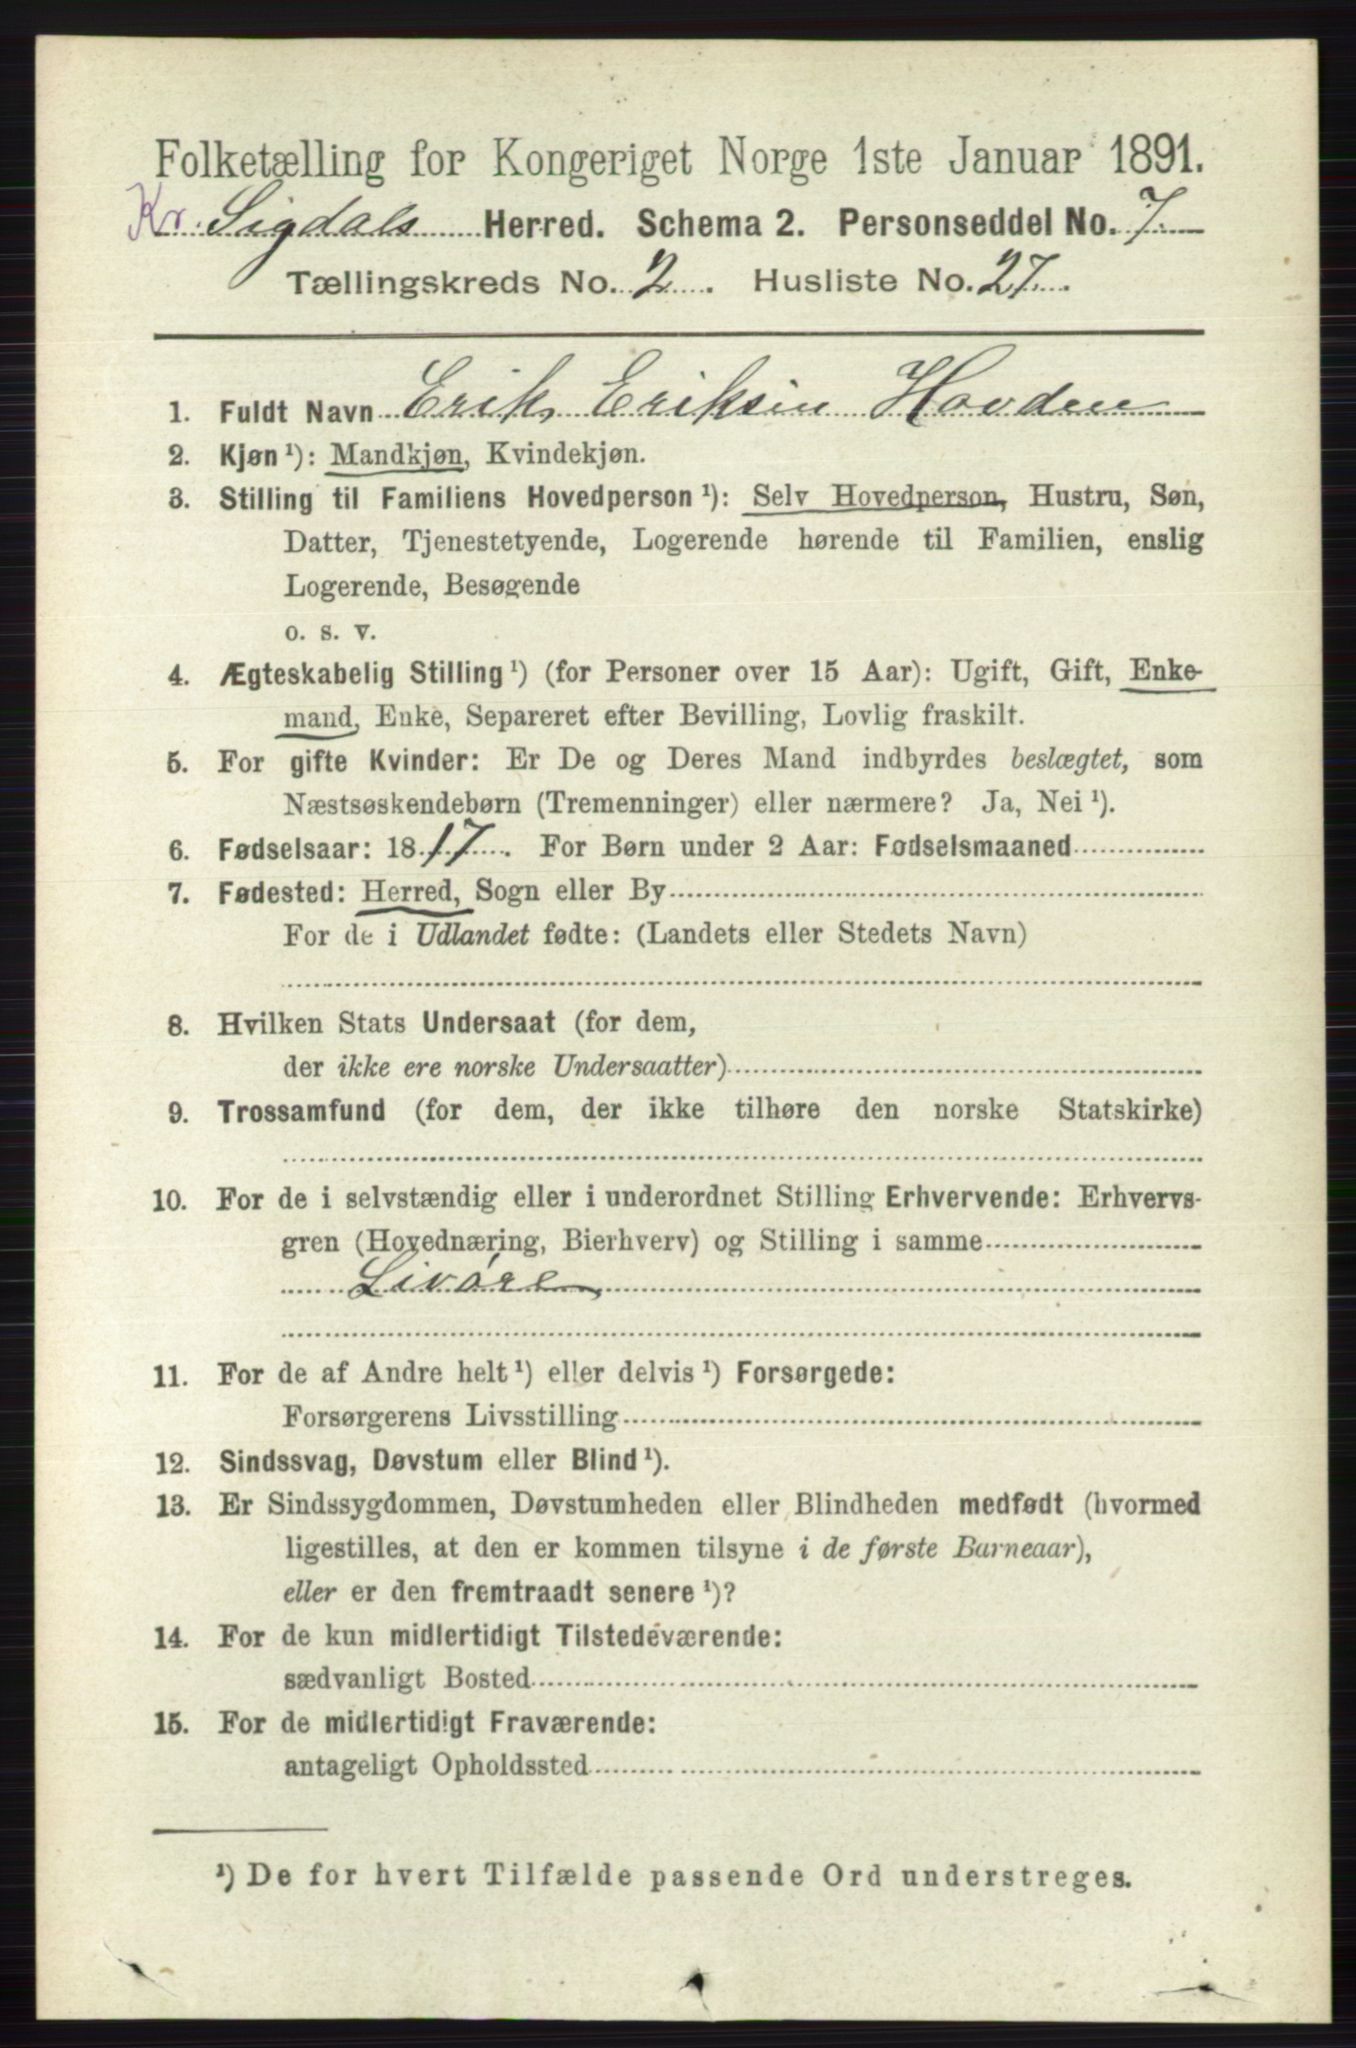 Folketælling for Kongeriget Norge 1ste Januar 1891.
Kr. Sigdals Herred. Schema 2. Personseddel No. 7
Tællingskreds No. 2. Husliste No. 27.
1. Fuldt Navn Erik Eriksen Hovden
2. Kjøn ¹): Mandkjøn, Kvindekjøn.
3. Stilling til Familiens Hovedperson ¹): Selv Hovedperson, Hustru, Søn,
Datter, Tjenestetyende, Logerende hørende til Familien, enslig
Logerende, Besøgende
o. s. v.
4. Ægteskabelig Stilling ¹) (for Personer over 15 Aar): Ugift, Gift, Enke-
mand, Enke, Separeret efter Bevilling, Lovlig fraskilt.
5. For gifte Kvinder: Er De og Deres Mand indbyrdes beslægtet, som
Næstsøskendebørn (Tremenninger) eller nærmere? Ja, Nei ¹).
6. Fødselsaar: 1817. For Børn under 2 Aar: Fødselsmaaned
7. Fødested: Herred, Sogn eller By
For de i Udlandet fødte: (Landets eller Stedets Navn)
8. Hvilken Stats Undersaat (for dem,
der ikke ere norske Undersaatter)
9. Trossamfund (for dem, der ikke tilhøre den norske Statskirke)
10. For de i selvstændig eller i underordnet Stilling Erhvervende: Erhvervs-
gren (Hovednæring, Bierhverv) og Stilling i samme
Livøre
11. For de af Andre helt ¹) eller delvis ¹) Forsørgede:
Forsørgerens Livsstilling
12. Sindssvag, Døvstum eller Blind ¹).
13. Er Sindssygdommen, Døvstumheden eller Blindheden medfødt (hvormed
ligestilles, at den er kommen tilsyne i de første Barneaar),
eller er den fremtraadt senere ¹)?
14. For de kun midlertidigt Tilstedeværende:
sædvanligt Bosted
15. For de midlertidigt Fraværende:
antageligt Opholdssted
¹) De for hvert Tilfælde passende Ord understreges.